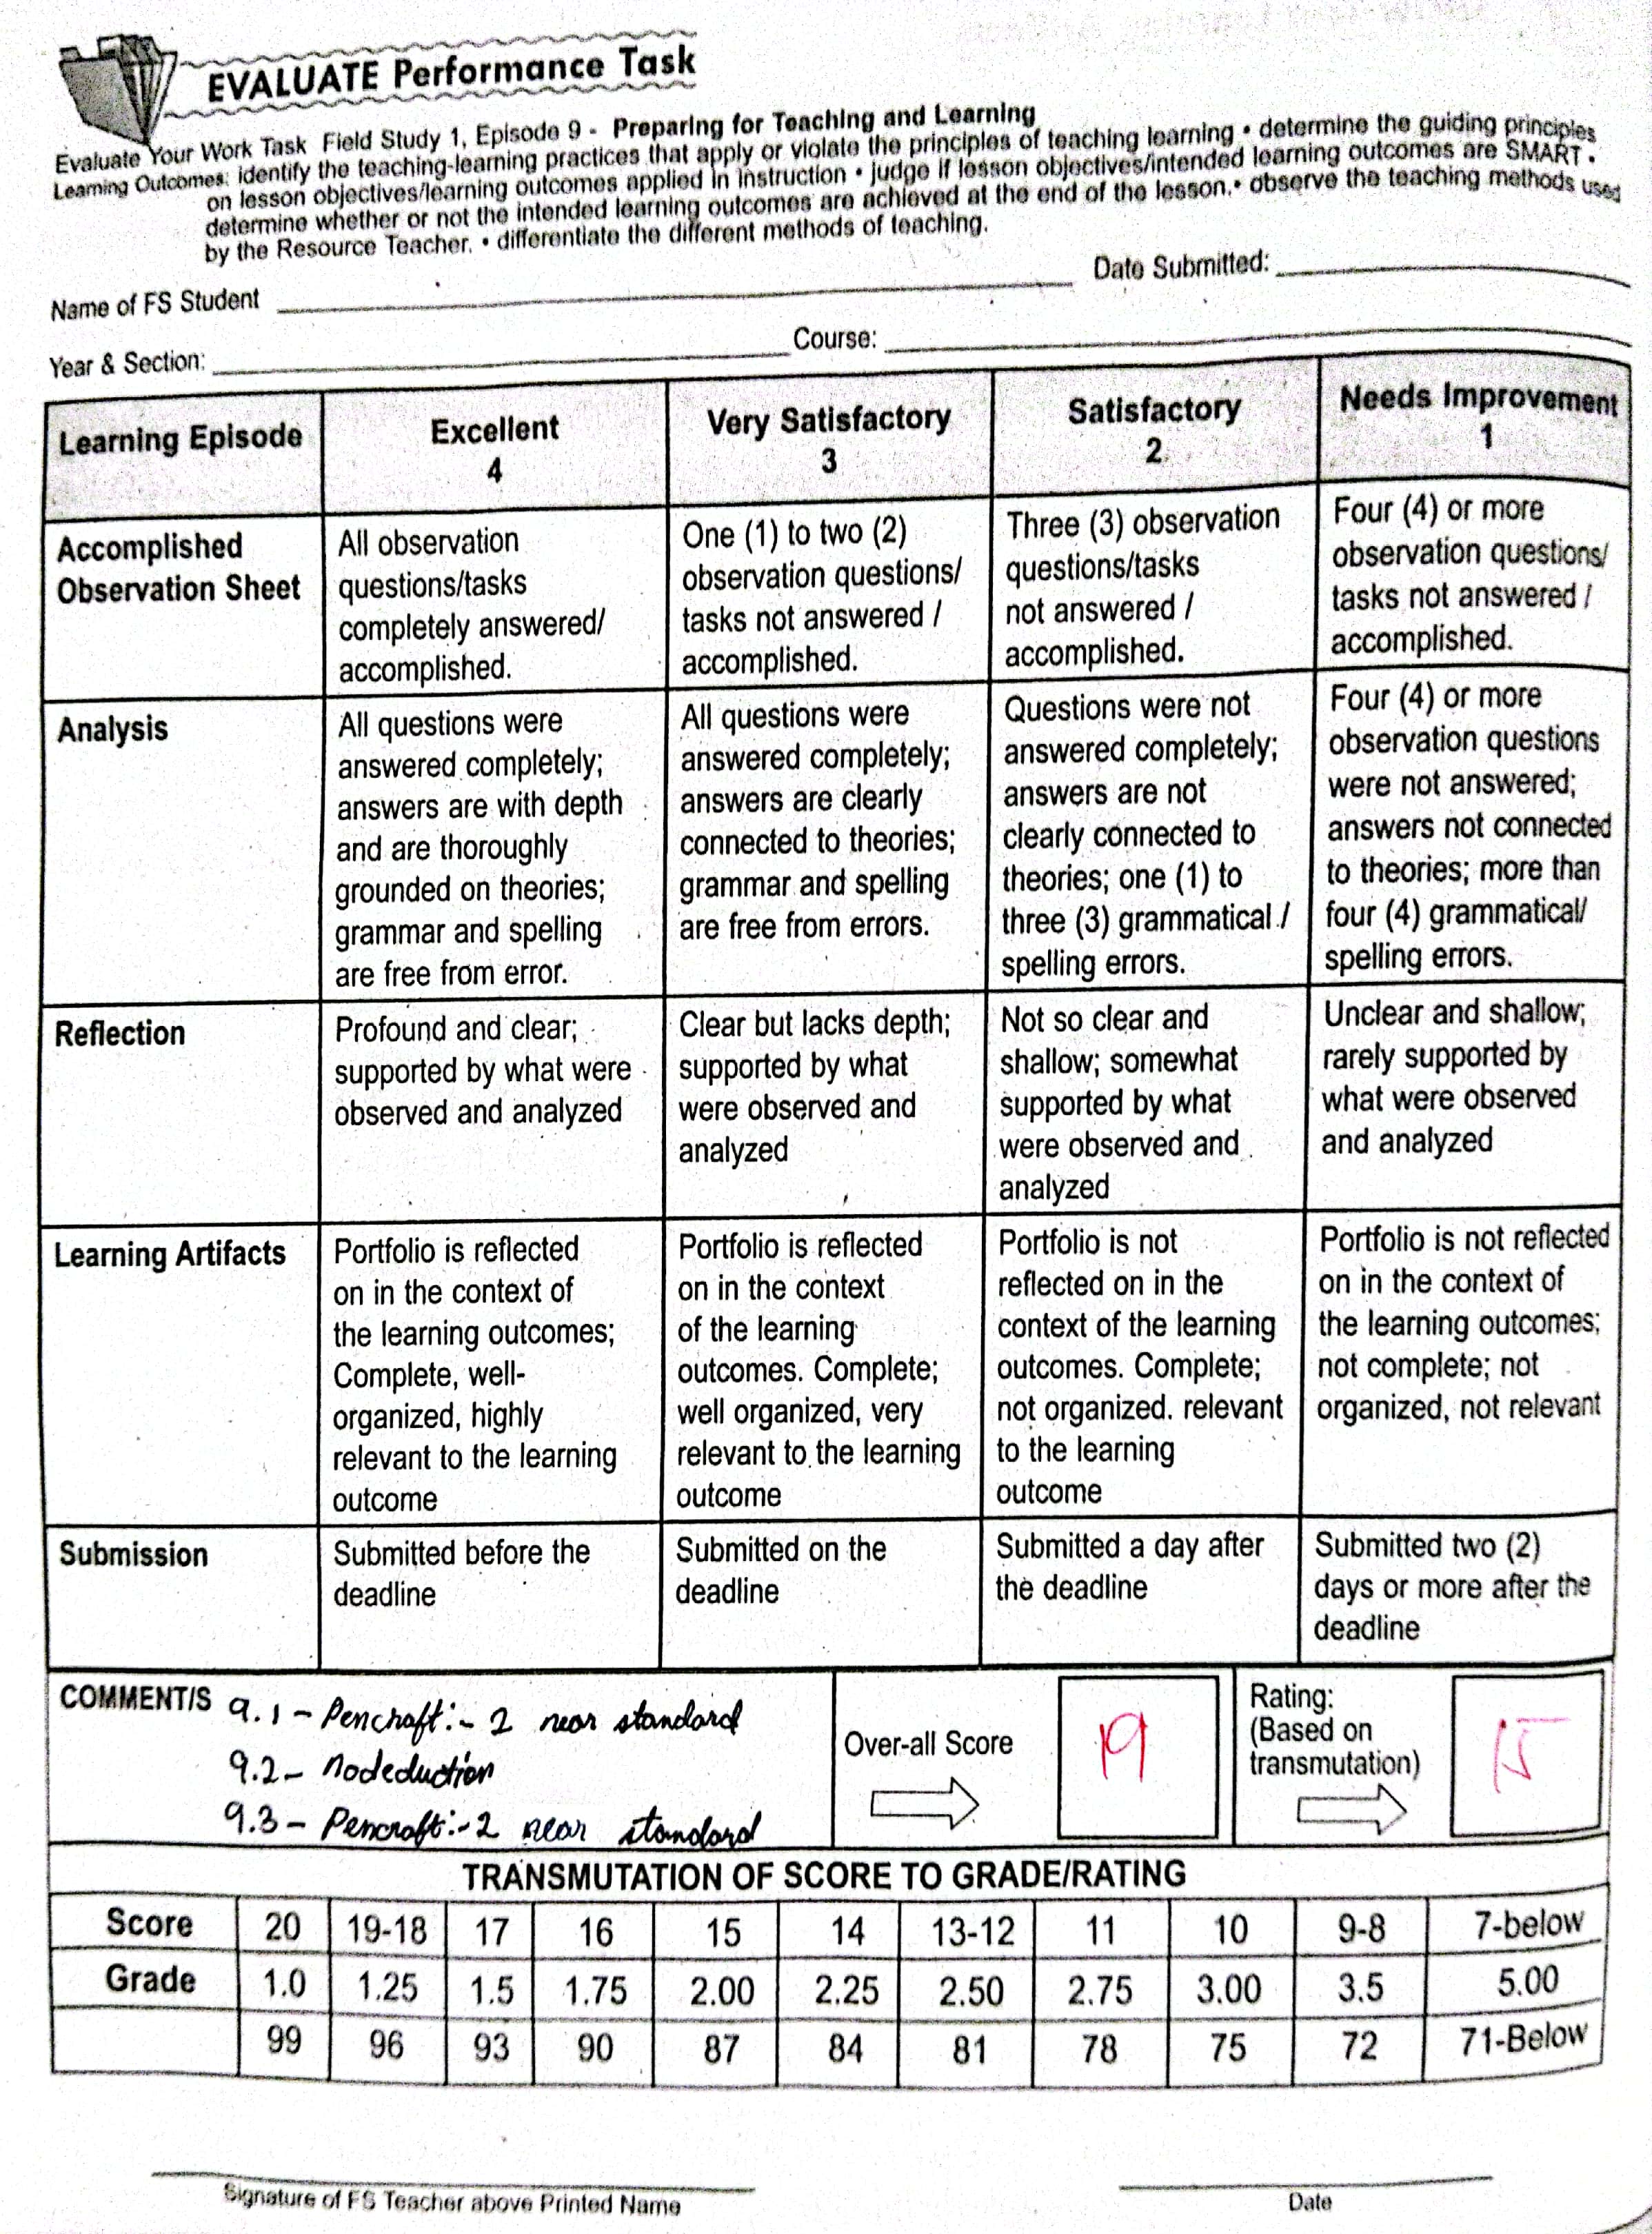 EVALUATE Performance Task
Evaluate Your Work Task Field Study 1, Episode 9 - Preparing for Teaching and Learning
Learning Outcomes: identify the teaching-learning practices that apply or violate the principles of teaching learning • determine the guiding principles
on lesson objectives/learning outcomes applied in instruction • judge if lesson objectives/intended learning outcomes are SMART •
determine whether or not the intended learning outcomes are achieved at the end of the lesson. • observe the teaching methods used
by the Resource Teacher. • differentiate the different methods of teaching.
Name of FS Student Date Submitted:
Year & Section: Course:
Learning Episode
Excellent
4
Very Satisfactory
3
Satisfactory
2
Needs Improvement
1
Accomplished
Observation Sheet
All observation
questions/tasks
completely answered/
accomplished.
One (1) to two (2)
observation questions/
tasks not answered /
accomplished.
Three (3) observation
questions/tasks
not answered /
accomplished.
Four (4) or more
observation questions/
tasks not answered /
accomplished.
Analysis
All questions were
answered completely;
answers are with depth
and are thoroughly
grounded on theories;
grammar and spelling
are free from error.
All questions were
answered completely;
answers are clearly
connected to theories;
grammar and spelling
are free from errors.
Questions were not
answered completely;
answers are not
clearly connected to
theories; one (1) to
three (3) grammatical /
spelling errors.
Four (4) or more
observation questions
were not answered;
answers not connected
to theories; more than
four (4) grammatical/
spelling errors.
Reflection
Profound and clear;
supported by what were
observed and analyzed
Clear but lacks depth;
supported by what
were observed and
analyzed
Not so clear and
shallow; somewhat
supported by what
were observed and
analyzed
Unclear and shallow;
rarely supported by
what were observed
and analyzed
Learning Artifacts
Portfolio is reflected
on in the context of
the learning outcomes;
Complete, well-
organized, highly
relevant to the learning
outcome
Portfolio is reflected
on in the context
of the learning
outcomes. Complete;
well organized, very
relevant to the learning
outcome
Portfolio is not
reflected on in the
context of the learning
outcomes. Complete;
not organized. relevant
to the learning
outcome
Portfolio is not reflected
on in the context of
the learning outcomes;
not complete; not
organized, not relevant
Submission
Submitted before the
deadline
Submitted on the
deadline
Submitted a day after
the deadline
Submitted two (2)
days or more after the
deadline
COMMENT/S 9.1 - Pencraft:- 2 near standard
9.2 - No deduction
9.3 - Pencraft:- 2 near standard
Over-all Score
19
Rating:
(Based on
transmutation)
15
TRANSMUTATION OF SCORE TO GRADE/RATING
Score 20 19-18 17 16 15 14 13-12 11 10 9-8 7-below
Grade 1.0 1.25 1.5 1.75 2.00 2.25 2.50 2.75 3.00 3.5 5.00
99 96 93 90 87 84 81 78 75 72 71-Below
Signature of FS Teacher above Printed Name
Date